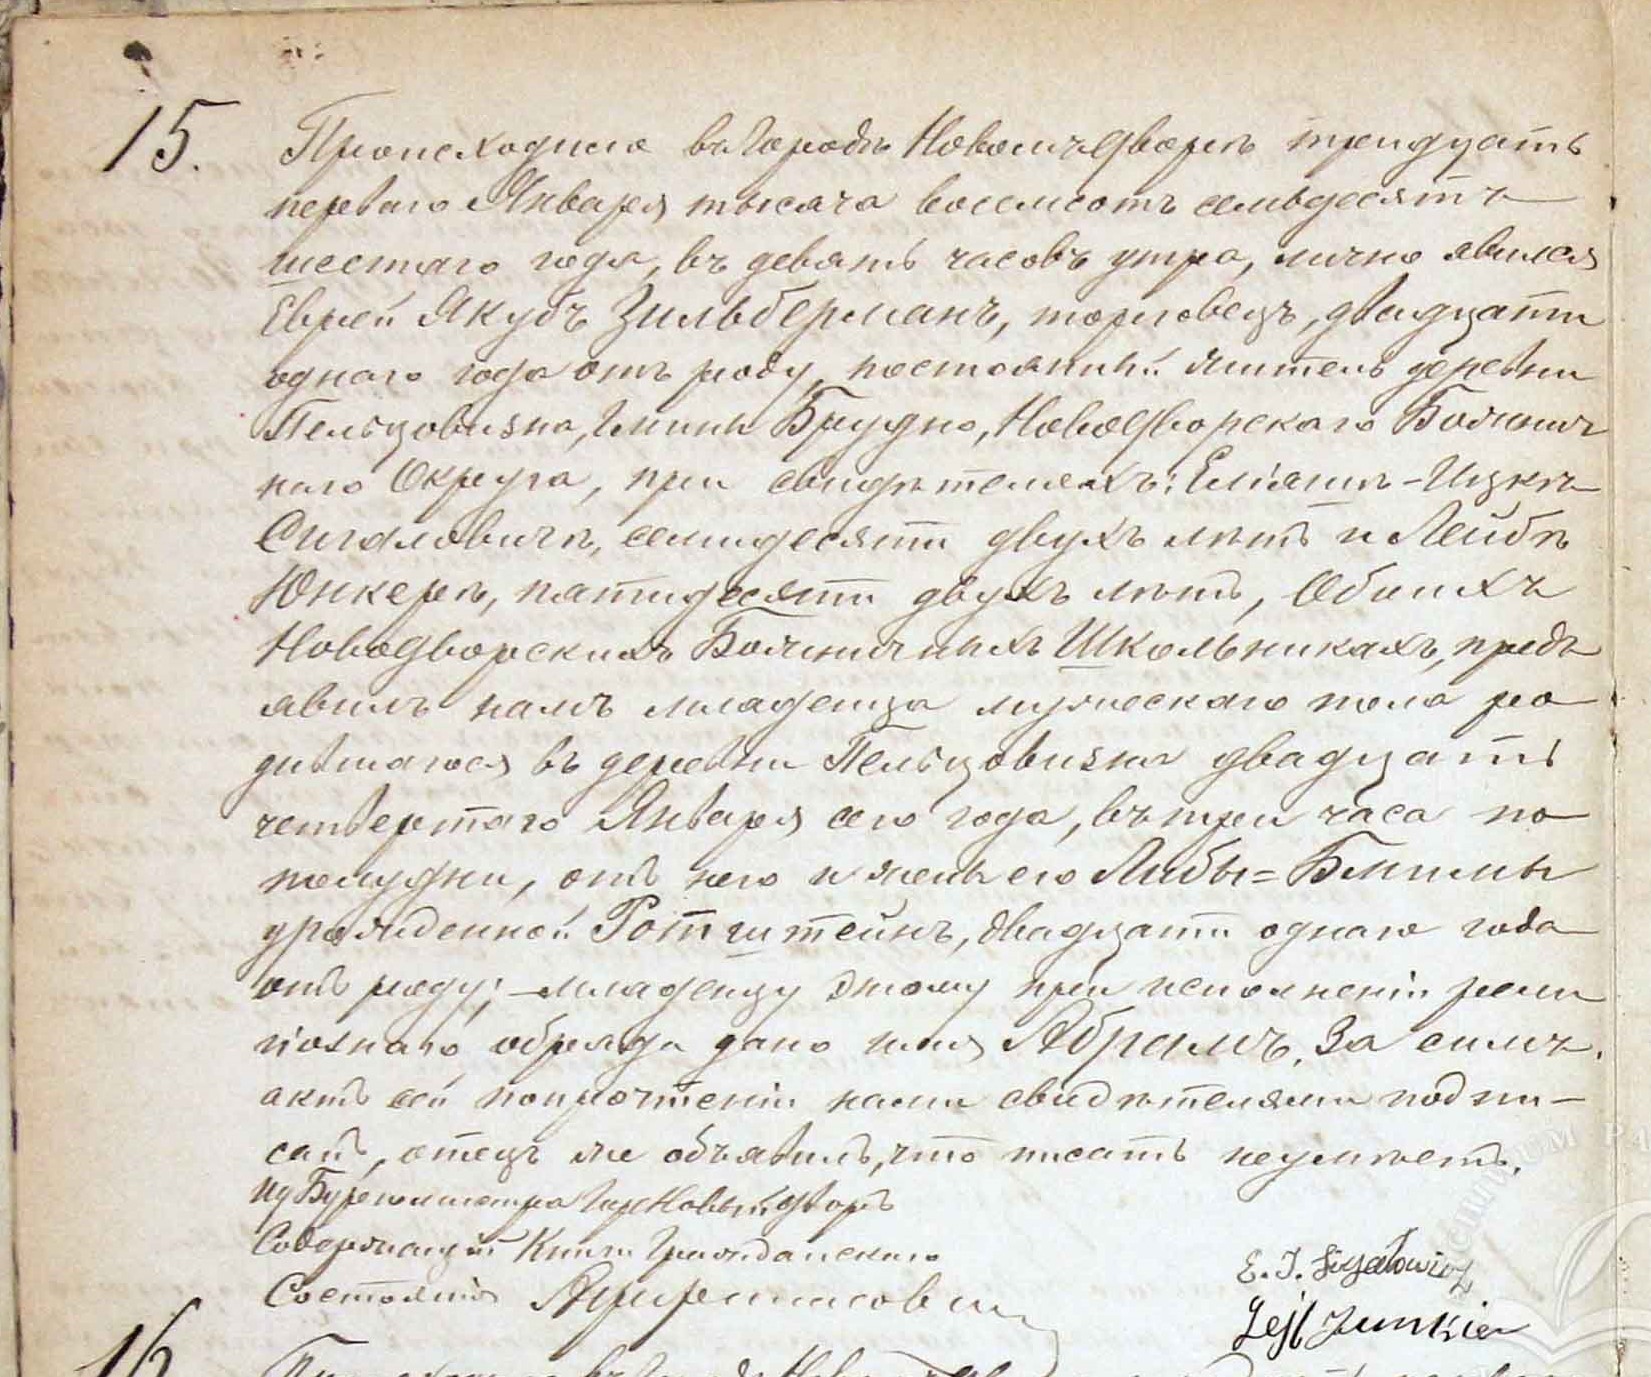 15. Происходило въ Городѣ Новомъ Дворѣ тридцать
перваго Января тысяча восемсотъ семьдесятъ
шестаго года, въ девять часовъ утра, лично явился
Еврей Якубъ Зильберманъ, торговецъ, двадцати
одного года отъ роду, постоянный житель деревни
Пельцовизна, Гмины Брудно, Новодворскаго Божнич
наго Округа, при свидѣтеляхъ: Еліашѣ-Ицкѣ
Сигаловичѣ, семидесяти двухъ лѣтъ и Лейбѣ
Юнкерѣ, пятидесяти двухъ лѣтъ, Обоихъ
Новодворскихъ Божничныхъ Школьникахъ, предъ
явилъ намъ младенца мужескаго пола ро
дившагося въ деревни Пельцовизна двадцать
четвертаго Января сего года, въ три часа по
полудни, отъ него и жены его Либы=Блимы
урожденной Ротштейнъ, двадцати одного года
отъ роду; - младенцу этому при исполненіи рели
гіознаго обряда дано имя Абрамъ. За симъ
актъ сей по прочтеніи нами свидѣтелями подпи-
санъ, отецъ же объявилъ, что писать неумѣетъ.
Бургомистра Гор Новый Дворъ
Содержащій Книги Гражданскаго
Состоянія
E. I. Sigałowicz
Lejb Junkier
16